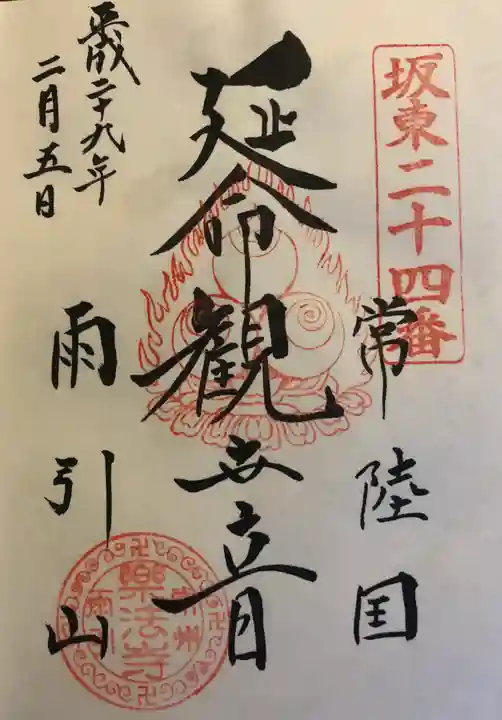 坂東二十四番
常陸国
延命観世音
雨引山
平成二十九年
二月五日
樂法寺